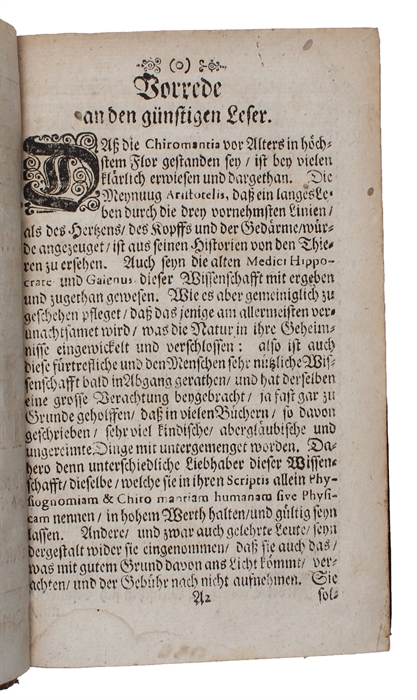 (o)
Vorrede
an den günstigen Leser.
DAß die Chiromantia vor Alters in höch-
stem Flor gestanden sey / ist bey vielen
klärlich erwiesen und dargethan. Die
Meynuug Aristotelis, daß ein langes Le-
ben durch die drey vornehmsten Linien /
als des Hertzens / des Kopffs und der Gedärme / wür-
de angezeuget / ist aus seinen Historien von den Thie-
ren zu ersehen. Auch seyn die alten Medici Hippo-
crate und Galenus dieser Wissenschafft mit ergeben
und zugethan gewesen. Wie es aber gemeiniglich zu
geschehen pfleget / daß das jenige am allermeisten ver-
unachtsamet wird / was die Natur in ihre Geheim-
nisse eingewickelt und verschlossen : also ist auch
diese fürtrefliche und den Menschen sehr nützliche Wis-
senschafft bald in Abgang gerathen / und hat derselben
eine grosse Verachtung beygebracht / ja fast gar zu
Grunde geholffen / daß in vielen Büchern / so davon
geschrieben / sehr viel kindische / abergläubische und
ungereimte Dinge mit untergemenget worden. Da-
hero denn unterschiedliche Liebhaber dieser Wissen-
schafft / dieselbe / welche sie in ihren Scriptis allein Phy-
siognomiam & Chiromantiam humanam sive Physi-
cam nennen / in hohem Werth halten / und gültig seyn
lassen. Andere / und zwar auch gelehrte Leute / seyn
dergestalt wider sie eingenommen / daß sie auch das /
was mit gutem Grund davon ans Licht kömmt / ver-
achten / und der Gebühr nach nicht aufnehmen. Sie
A2
sol-